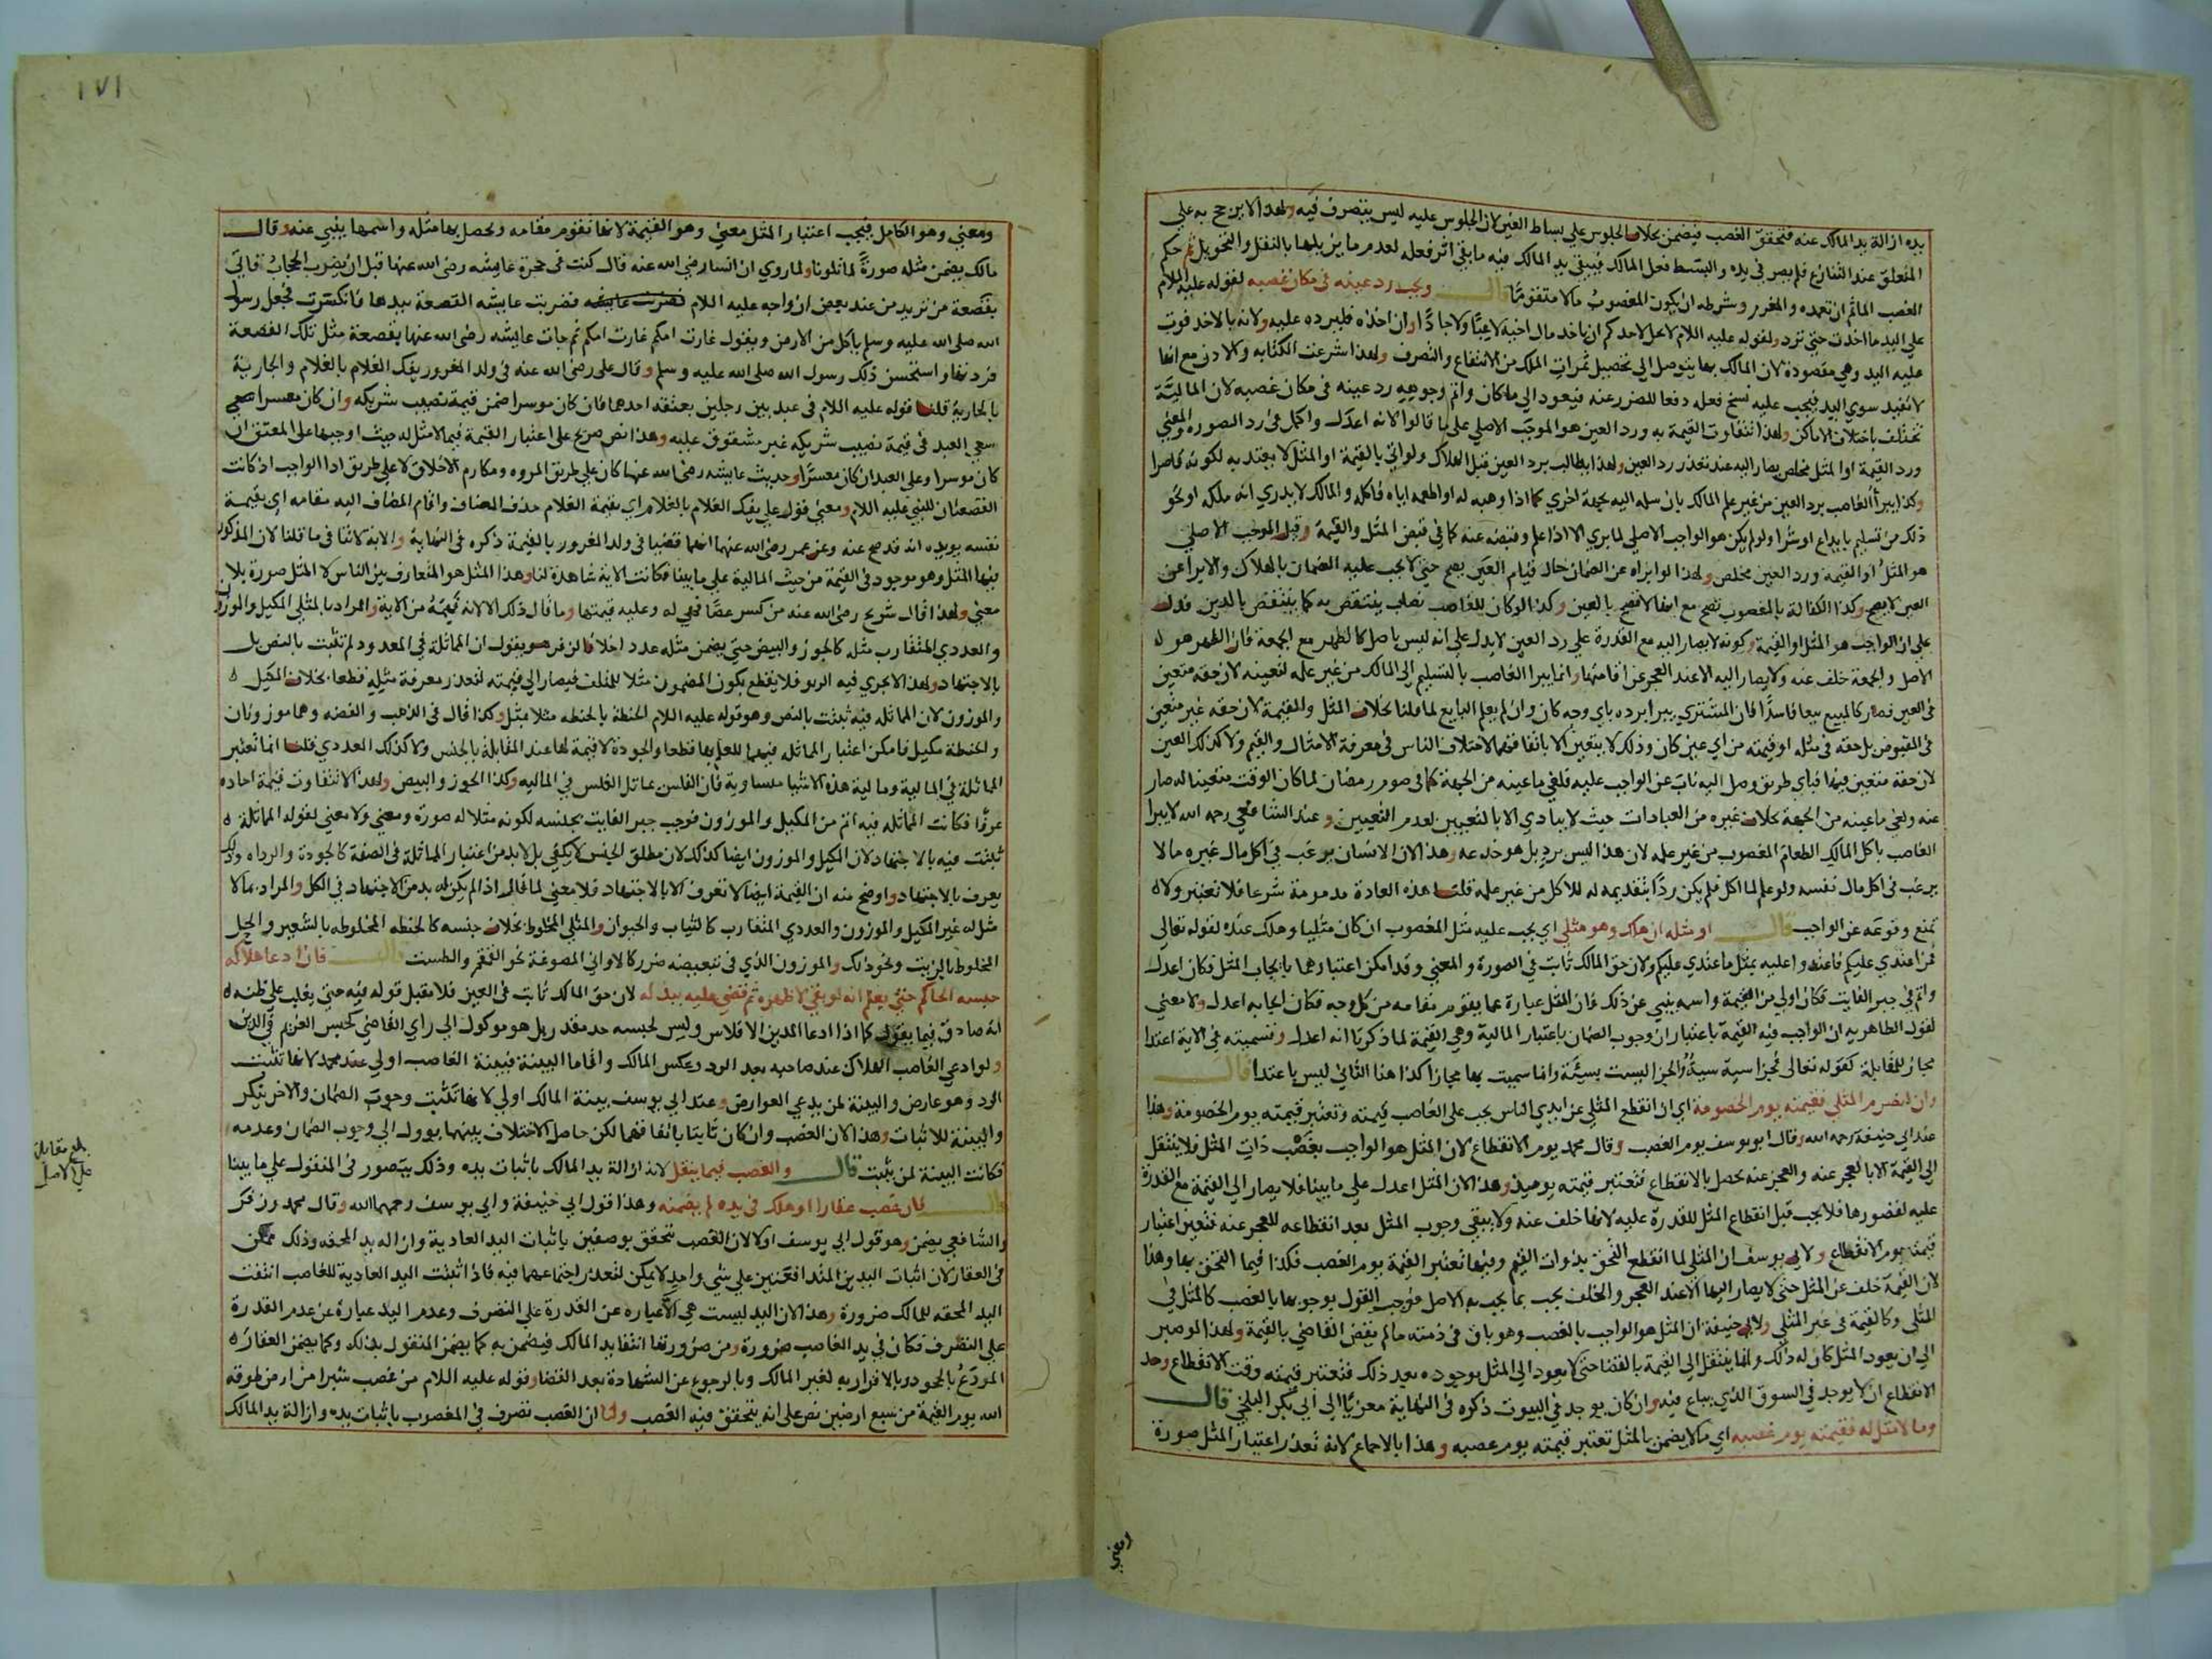 يده ازالة يد المالك عنه فتحقق الغصب فيضمن بخلاف الجلوس علي بساط الغير لان الجلوس عليه ليس بتصرف فيه ولهذا لا يرجح به علي
المتعلق عند التنازع فلم يصر في يده والبسط فعل المالك فيبقي يد المالك فيه ما بقي اثر فعله لعدم ما يزيلها بالنقل والتحويل ثم حكم
الغصب الماثم ان تعمده والمغرم وشرطه ان يكون المغصوب مالا متقوما قال ويجب رد عينه في مكان غصبه لقوله عليه اللام
علي اليد ما اخذت حتي ترد ولقوله عليه اللام لا يحل لاحدكم ان ياخذ مال اخيه لاعبا ولا جادا وان اخذه فليرده عليه ولانه بالاخذ فوت
عليه اليد وهي مقصودة لان المالك بها يتوصل الي تحصيل ثمرات الملك من الانتفاع والتصرف ولهذا شرعت الكتابه والاذن مع انها
لا تفيد سوي اليد فيجب عليه نسخ فعله دفعا للضرر عنه فيعود الي ما كان واتم وجوهه رد عينه في مكان غصبه لان المالية
تختلف باختلاف الاماكن ولهذا تتفاوت القيمة به ورد العين هو الموجب الاصلي علي ما قالوا لانه اعدل واكمل في رد الصوره والمعني
ورد القيمة او المثل مخلص يصار اليه عند تعذر رد العين ولهذا يطالب برد العين قبل الهلاك ولو اتي بالقيمة او المثل لا يعتد به لكونه قاصرا
وكذا يبرأ الغاصب برد العين من غير علم المالك بان سلمه اليه بجهة اخري كما اذا وهبه له او اطعمه اياه فاكله والمالك لا يدري انه ملكه او نحو
ذلك من تسليم بايداع او شرا ولو لم يكن هو الواجب الاصلي لما بري الا اذا علم وقبضه عنه كما في قبض المثل والقيمة وقيل الموجب الاصلي
هو المثل او القيمة ورد العين مخلص ولهذا لو ابراه عن الضمان حال قيام العين يصح حتي لا يجب عليه الضمان بالهلاك والابرا عن
العين لا يصح وكذا الكفالة بالمغصوب تصح مع انها لا تصح بالعين وكذا لو كان للغاصب نصاب ينتقص به كما ينتقص بالدين فدل
علي ان الواجب هو المثل او القيمة وكونه لا يصار اليه مع القدرة علي رد العين لا يدل علي انه ليس باصل كالظهر مع الجمعة فان الظهر هو
الاصل والجمعة خلف عنه ولا يصار اليه الا عند العجز عن اقامتها وانما يبرا الغاصب بالتسليم الي المالك من غير علمه لتعينه لان حقه متعين
في العين فصار كالمبيع بيعا فاسدا فان المشتري يبرا برده باي وجه كان وان لم يعلم البايع لما قلنا بخلاف المثل والقيمة لان حقه غير متعين
في المقبوض بل حقه في مثله او قيمته من اي عين كان وذلك لا يتعين الا باتفاقهما لاختلاف الناس في معرفة الامثال والقيم ولا كذلك العين
لان حقه متعين فيها فباي طريق وصل اليه ناب عن الواجب عليه فلغي ما عينه من الجهة كما في صوم رمضان لما كان الوقت متعينا له صار
عنه ولغي ما عينه من الجهة بخلاف غيره من العبادات حيث لا يتادي الا بالتعيين لعدم التعيين وعند الشافعي رحمه الله لا يبرا
الغاصب باكل المالك الطعام المغصوب من غير علمه لان هذا ليس برد بل هو خدعه وهذا لان الانسان يرغب في اكل مال غيره ما لا
يرغب في اكل مال نفسه ولو علم لما اكل فلم يكن ردا بتقديمه له للاكل من غير علمه قلنا هذه العادة مذمومة شرعا فلا تعتبر ولا
تمنع وقوعه عن الواجب قال او مثله ان هلك وهو مثلي اي يجب عليه مثل المغصوب ان كان مثليا وهلك عنده لقوله تعالي
فمن اعتدي عليكم فاعتدوا عليه بمثل ما اعتدي عليكم ولان حق المالك ثابت في الصورة والمعني وقد امكن اعتبارهما بايجاب المثل فكان اعدل
واتم في جبر الفايت فكان اولي من القيمة واسمه ينبي عن ذلك فان المثل عبارة عما يقوم مقامه من كل وجه فكان ايجابه اعدل ولا معني
لقول الظاهريه ان الواجب فيه القيمة باعتبار ان وجوب الضمان باعتبار المالية وهي القيمة لما ذكرنا انه اعدل وتسميته في الاية اعتدا
مجاز للمقابلة كقوله تعالي وجزا سية سية والجزا ليست بسيئة وانما سميت بها مجازا كذا هذا الثاني ليس باعتدا قال
وان انصرم المثلي فقيمته يوم الخصومة اي ان انقطع المثلي عن ايدي الناس يجب علي الغاصب قيمته وتعتبر قيمته يوم الخصومة وهذا
عند ابي حنيفة رحمه الله وقال ابو يوسف يوم الغصب وقال محمد يوم الانقطاع لان المثل هو الواجب بغصب ذات المثل فلا ينتقل
الي القيمة الا بالعجز عنه والعجز عنه يحصل بالانقطاع فتعتبر قيمته يوميذ وهذا لان المثل اعدل علي ما بينا فلا يصار الي القيمة مع القدرة
عليه لقصورها فلا يجب قبل انقطاع المثل للقدرة عليه لانها خلف عنه ولا يبقي وجوب المثل بعد انقطاعه للعجز عنه فتعين اعتبار
قيمته يوم الانقطاع ولابي يوسف ان المثلي لما انقطع التحق بذوات القيم وفيها تعتبر القيمة يوم الغصب فكذا فيما التحق بها وهذا
لان القيمة خلف عن المثل حتي لا يصار اليها الا عند العجز والخلف يجب بما يجب به الاصل فوجب القول بوجوبها بالغصب كالمثل في
المثلي وكالقيمة في غير المثلي ولابي حنيفة ان المثل هو الواجب بالغصب وهو باق في ذمته ما لم يقض القاضي بالقيمة ولهذا لو صبر
الي ان يعود المثل كان له ذلك وانما ينتقل الي القيمة بالقضا حتي لا يعود الي المثل بوجوده بعد ذلك فتعتبر قيمته وقت الانقطاع وحد
الانقطاع ان لا يوجد في السوق الذي يباع فيه وان كان يوجد في البيوت ذكره في النهاية معزيا الي ابي بكر البلخي قال
وما لا مثل له فقيمته يوم غصبه اي ما لا يضمن بالمثل تعتبر قيمته يوم غصبه وهذا بالاجماع لانه تعذر اعتبار المثل صورة
ومعني
١٧١
ومعني وهو الكامل فيجب اعتبار المثل معني وهو القيمة لانها تقوم مقامه ويحصل بها مثله واسمها ينبي عنه وقال
مالك يضمن مثله صورة لما تلونا ولما روي ان انسا رضي الله عنه قال كنت في حجرة عايشه رضي الله عنها قبل ان يضرب الحجاب فاتي
بقصعة من ثريد من عند بعض ازواجه عليه اللام فضربت عايشه القصعة بيدها فانكسرت فجعل رسول
الله صلي الله عليه وسلم ياكل من الارض ويقول غارت امكم غارت امكم ثم جات عايشه رضي الله عنها بقصعة مثل تلك القصعة
فردتها واستحسن ذلك رسول الله صلي الله عليه وسلم وقال علي رضي الله عنه في ولد المغرور يفك الغلام بالغلام والجارية
بالجارية قلنا قوله عليه اللام في عبد بين رجلين يعتقه احدهما فان كان موسرا ضمن قيمة نصيب شريكه وان كان معسرا
سعي العبد في قيمة نصيب شريكه غير مشقوق عليه وهذا نص صريح علي اعتبار القيمة فيما لا مثل له حيث اوجبها علي المعتق ان
كان موسرا وعلي العبد ان كان معسرا وحديث عايشه رضي الله عنها كان علي طريق المروه ومكارم الاخلاق لا علي طريق ادا الواجب اذ كانت
القصعتان للنبي عليه اللام ومعني قول علي يفك الغلام بالغلام اي بقيمة الغلام حذف المضاف واقام المضاف اليه مقامه اي بقيمة
نفسه يويده انه قد صح عنه وعن عمر رضي الله عنهما انهما قضيا في ولد المغرور بالقيمة ذكره في النهاية والاية لا تنافي ما قلنا لان المذكور
فيها المثل وهو موجود في القيمة من حيث المالية علي ما بينا فكانت الاية شاهدة لنا وهذا المثل هو المتعارف بين الناس لا المثل صورة بلا
معني ولهذا قال شريح رضي الله عنه من كسر عصا فهي له وعليه قيمتها وما قال ذلك الا لانه فهمه من الاية والمراد بالمثلي المكيل والموزون
والعددي المتقارب مثله كالجوز والبيض حتي يضمن مثله عددا خلافا لزفر هو يقول ان المماثلة في المعدود لم تثبت بالنص بل
بالاجتهاد ولهذا لا يجري فيه الربو فلا يقطع بكون المضمون مثلا للمتلف فيصار الي قيمته لتعذر معرفة مثله قطعا بخلاف المكيل
والموزون لان المماثله فيه ثبتت بالنص وهو قوله عليه اللام الحنطة بالحنطه مثلا بمثل وكذا قال في الذهب والفضه وهما موزونان
والحنطة مكيل فامكن اعتبار المماثله فيهما للعلم بها قطعا والجودة لا قيمة لها عند المقابلة بالجنس ولا كذلك العددي قلنا انما تعتبر
المماثلة في المالية ومالية هذه الاشيا متساوية فان الفلس يماثل الفلس في الماليه وكذا الجوز والبيض ولهذا لا تتفاوت قيمة احاده
عرفا فكانت المماثله فيه اتم من المكيل والموزون فوجب جبر الفايت بجنسه لكونه مثلا له صورة ومعني ولا معني لقوله المماثلة
ثبتت فيه بالاجتهاد لان المكيل والموزون ايضا كذلك لان مطلق الجنس لا يكفي بل لا بد من اعتبار المماثلة في الصفة كالجودة والرداه وذلك
يعرف بالاجتهاد واوضح منه ان القيمة ايضا لا تعرف الا بالاجتهاد فلا معني لما قاله اذ لم يكن له بد من الاجتهاد في الكل والمراد بما لا
مثل له غير المكيل والموزون والعددي المتقارب كالثياب والحيوان والمثلي المخلوط بخلاف جنسه كالحنطه المخلوطه بالشعير والخل
المخلوط بالزيت ونحو ذلك والموزون الذي في تبعيضه ضرر كالاواني المصوغة نحو القمقم والطست قال فان ادعا هلاكه
حبسه الحاكم حتي يعلم انه لو بقي لاظهره ثم قضي عليه ببدله لان حق المالك ثابت في العين فلا يقبل قوله فيه حتي يغلب علي ظنه
انه صادق فيما يقول كما اذا ادعا المدين الافلاس وليس لحبسه حد مقدر بل هو موكول الي راي القاضي كحبس الغريم في الدين
ولو ادعي الغاصب الهلاك عند صاحبه بعد الرد وعكس المالك واقاما البينة فبينة الغاصب اولي عند محمد لانها تثبت
الرد وهو عارض والبينة لمن يدعي العوارض وعند ابي يوسف بينة المالك اولي لانها تثبت وجوب الضمان والاخر ينكر
والبينة للاثبات وهذا لان الغصب وان كان ثابتا باتفاقهما لكن حاصل الاختلاف بينهما يوول الي وجوب الضمان وعدمه
فكانت البينة لمن يثبت قال والغصب فيما ينقل لانه ازالة يد المالك باثبات يده وذلك يتصور في المنقول علي ما بينا
قال فان غصب عقارا وهلك في يده لم يضمنه وهذا قول ابي حنيفة وابي يوسف رحمهما الله وقال محمد وزفر
والشافعي يضمن وهو قول ابي يوسف اولا لان الغصب يتحقق بوصفين باثبات اليد العادية وازاله يد المحقه وذلك ممكن
في العقار لان اثبات اليدين المتدافعتين علي شي واحد لا يمكن لتعذر اجتماعهما فيه فاذا اثبت اليد العادية للغاصب انتفت
اليد المحقه للمالك ضرورة وهذا لان اليد ليست هي الا عباره عن القدرة علي التصرف وعدم اليد عبارة عن عدم القدرة
علي التصرف فكان في يد الغاصب ضرورة ومن ضرورتها انتفا يد المالك فيضمن به كما يضمن المنقول بذلك وكما يضمن العقار
المودع بالجحود وبالاقرار به لغير المالك وبالرجوع عن الشهادة بعد القضا وقوله عليه اللام من غصب شبرا من ارض طوقه
الله يوم القيمة من سبع ارضين نص علي انه يتحقق فيه الغصب ولنا ان الغصب تصرف في المغصوب باثبات يده وازالة يد المالك
بلغ مقابلة
علي الاصل